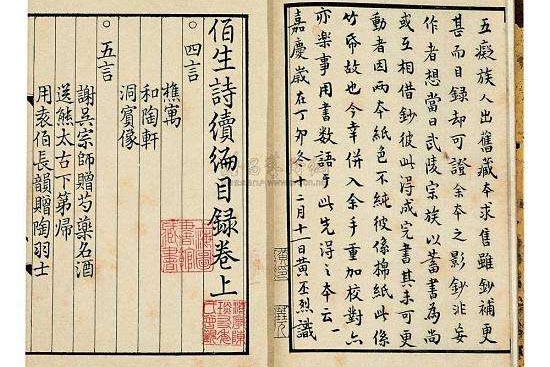 五癡族人出舊藏本求售雖鈔補更
甚而目錄却可證余本之影鈔非妄
作者想當日武陵宗族以蓄書爲尚
或互相借鈔彼此得成完書其未可更
動者因兩本紙色不純彼係棉紙此係
竹帋故也今幸併入余手重加校對亦
亦樂事用書數語于此先得之本云
嘉慶歲在丁卯冬十二月十日黃丕烈識
伯生詩續編目錄卷上
四言
樵寓
和陶軒
洞賓像
五言
謝吳宗師贈芍藥名酒
送熊太古下第歸
用袁伯長韻贈陶羽士